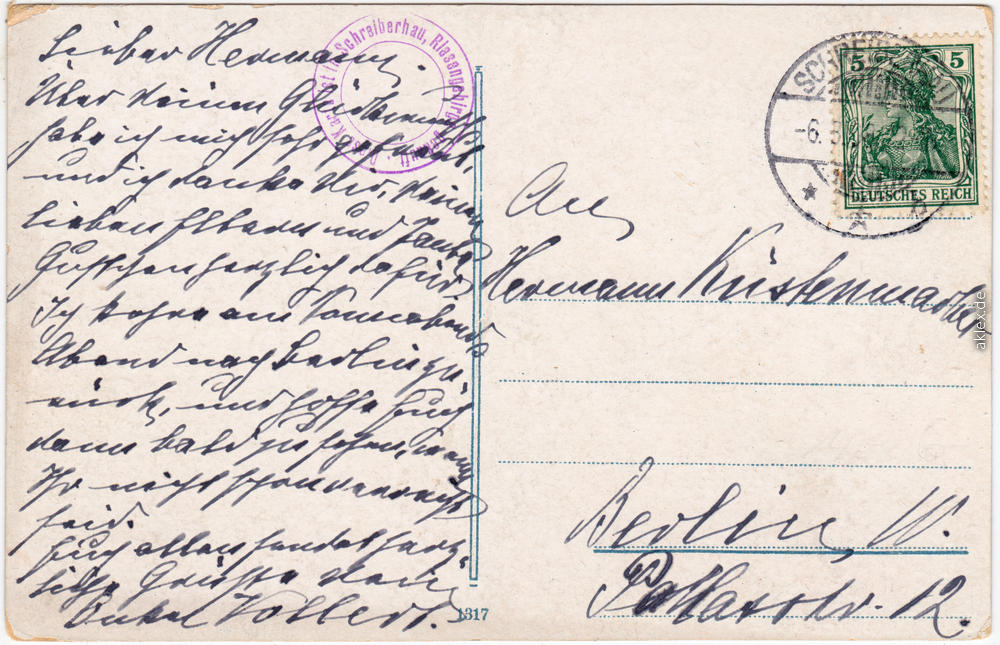 Lieber Hermann.
Über Deinen Glückwunsch
habe ich mich sehr gefreut,
und ich danke Dir, Deinen
lieben Eltern und Tante
herzlich dafür.
Ich kehre am Sonnabend
Abend nach Berlin zu-
rück, und hoffe Euch
dann bald zu sehen, wenn
Ihr nicht schon verreist
seid.
Euch allen sendet herz-
liche Grüße Dein
Onkel Vollert.
1317
Schreiberhau, Riesengebirge
-6.
5 5
DEUTSCHES REICH
An
Hermann Küstenmacher
Berlin W.
Pallasstr. 12.
aklex.de